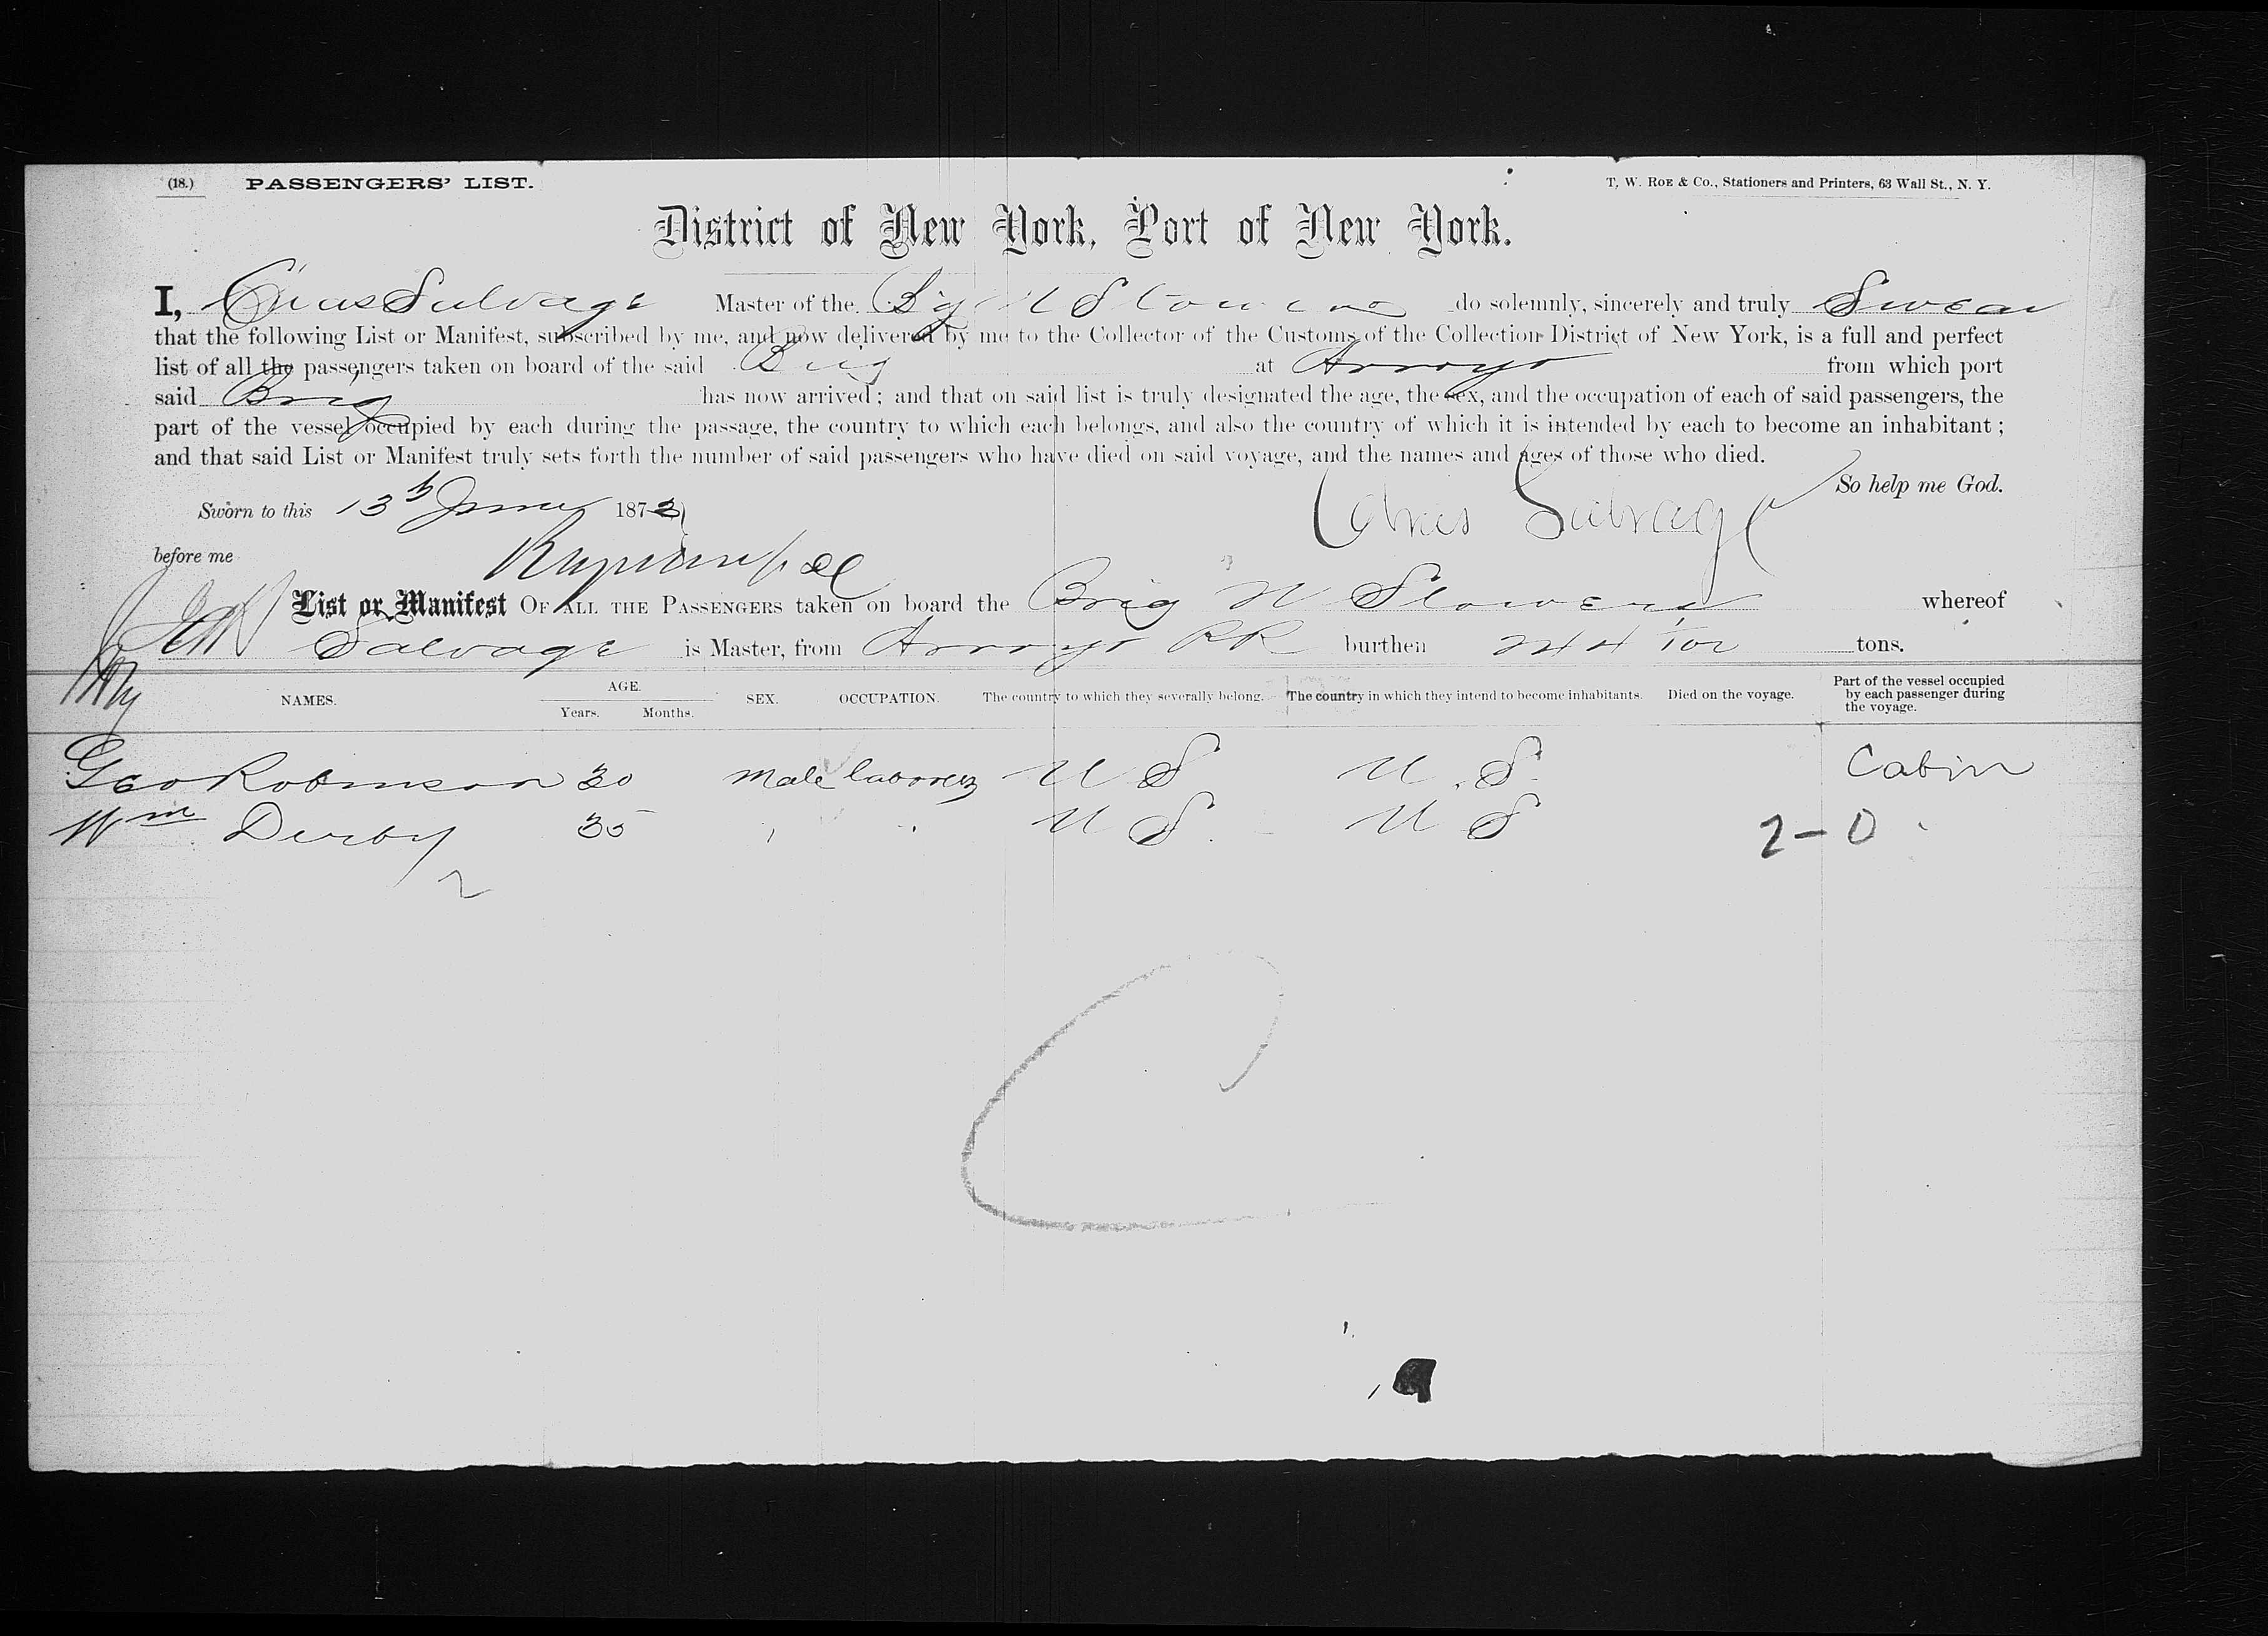 (18.) PASSENGERS' LIST. T. W. ROE & Co., Stationers and Printers, 63 Wall St., N. Y.
District of New York, Port of New York.
I, Chas Salvage Master of the Big N Stowers do solemnly, sincerely and truly Swear
that the following List or Manifest, subscribed by me, and now delivered by me to the Collector of the Customs of the Collection District of New York, is a full and perfect
list of all the passengers taken on board of the said Brig at Arroyo from which port
said Brig has now arrived; and that on said list is truly designated the age, the sex, and the occupation of each of said passengers, the
part of the vessel occupied by each during the passage, the country to which each belongs, and also the country of which it is intended by each to become an inhabitant;
and that said List or Manifest truly sets forth the number of said passengers who have died on said voyage, and the names and ages of those who died.
So help me God.
Sworn to this 13th 1873 Chas Salvage
before me
List or Manifest OF ALL THE PASSENGERS taken on board the Brig N Stowers whereof
Salvage is Master, from Arroyo PR burthen 244 tons.
NAMES. AGE. Years. Months. SEX. OCCUPATION. The country to which they severally belong. The country in which they intend to become inhabitants. Died on the voyage. Part of the vessel occupied by each passenger during the voyage.
Geo Robinson 30 male laborers U S U.S. Cabin
Wm Derby 35 U S. U S 2-0
2
C